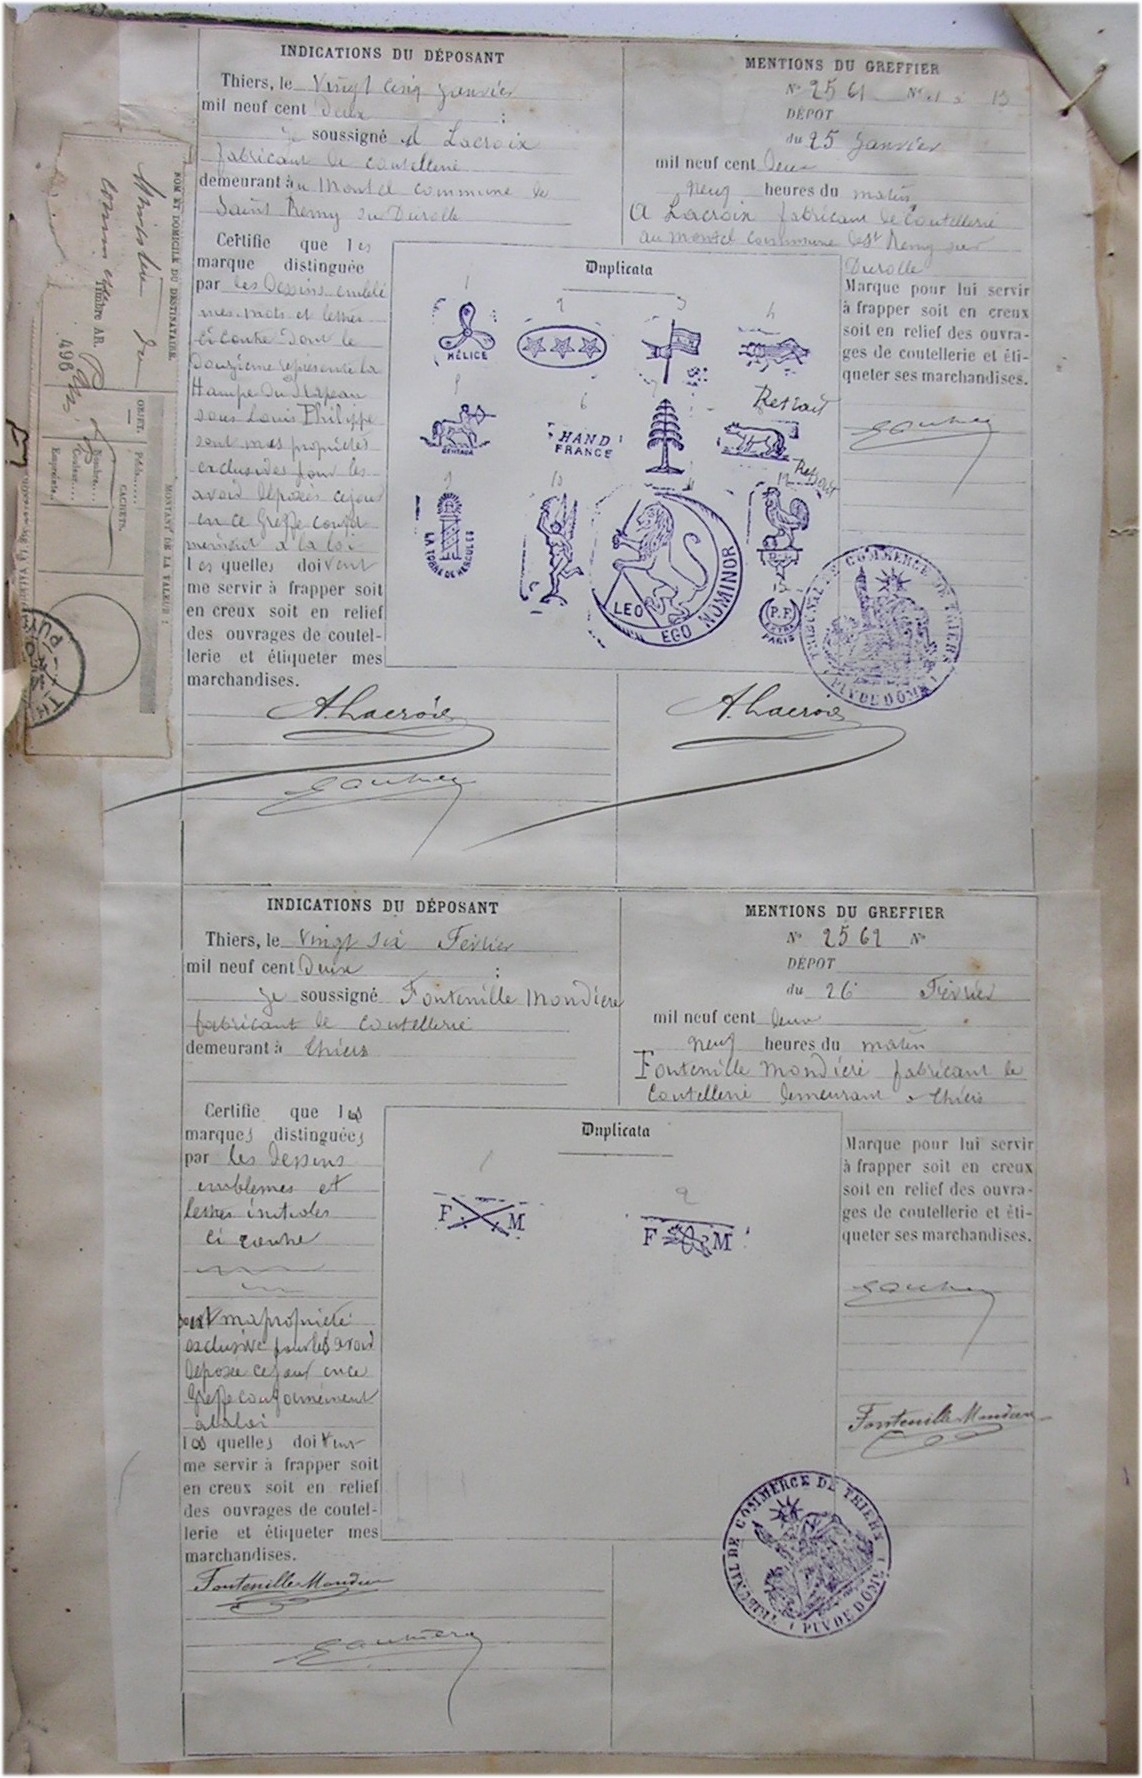 INDICATIONS DU DÉPOSANT
Thiers, le Vingt cinq Janvier
mil neuf cent Deux ;
je soussigné A Lacroix
fabricant de coutellerie
demeurant au Montel commune de
Saint Remy sur Durolle
Certifie que les
marque distinguée
par les Dessins emblé
mes mots et lettres
ci contre dont le
douzième représente la
Hampe du Drapeau
sous Louis Philippe
sont mes propriétés
exclusives pour les
avoir déposées ce jour
en ce Greffe confor
mément à la loi
les quelles doivent
me servir à frapper soit
en creux soit en relief
des ouvrages de coutel-
lerie et étiqueter mes
marchandises.
A. Lacroix
MENTIONS DU GREFFIER
N° 2561 N°
DÉPOT
du 25 Janvier
mil neuf cent deux
neuf heures du matin
A Lacroix fabricant de Coutellerie
au montel commune de St Remy sur
Durolle
Marque pour lui servir
à frapper soit en creux
soit en relief des ouvra-
ges de coutellerie et éti-
queter ses marchandises.
Duplicata
1 2 3 4
HÉLICE
6
Retrait
CENTAUR
HAND
FRANCE
Retrait
9 10 12
LA TORRE DE HERCULES
LEO
EGO NOMINOR
P.F
PARIS
TRIBUNAL DE COMMERCE DE THIERS
(PUY DE DÔME)
A. Lacroix
NOM ET DOMICILE DU DESTINATAIRE.
Ministre du
Commerce
Timbre AR.
Paris
496
OBJET.
Poids
CACHETS.
Nombre
Couleur
Empreinte
MONTANT DE LA VALEUR
INDICATIONS DU DÉPOSANT
Thiers, le vingt six Février
mil neuf cent Deux ;
Je soussigné Fontenille Mondiere
fabricant de Coutellerie
demeurant à Thiers
Certifie que les
marques distinguées
par les Dessins
emblemes et
lettres initiales
ci contre
sont ma propriété
exclusive pour les avoir
déposée ce jour en ce
Greffe conformément
à la loi
les quelles doivent
me servir à frapper soit
en creux soit en relief
des ouvrages de coutel-
lerie et étiqueter mes
marchandises.
Fontenille Mondiere
MENTIONS DU GREFFIER
N° 2562 N°
DÉPOT
du 26 Février
mil neuf cent deux
neuf heures du matin
Fontenille Mondiere fabricant de
Coutellerie demeurant à Thiers
Marque pour lui servir
à frapper soit en creux
soit en relief des ouvra-
ges de coutellerie et éti-
queter ses marchandises.
Fontenille Mondiere
Duplicata
1
2
F M
F M
TRIBUNAL DE COMMERCE DE THIERS
(PUY DE DÔME)